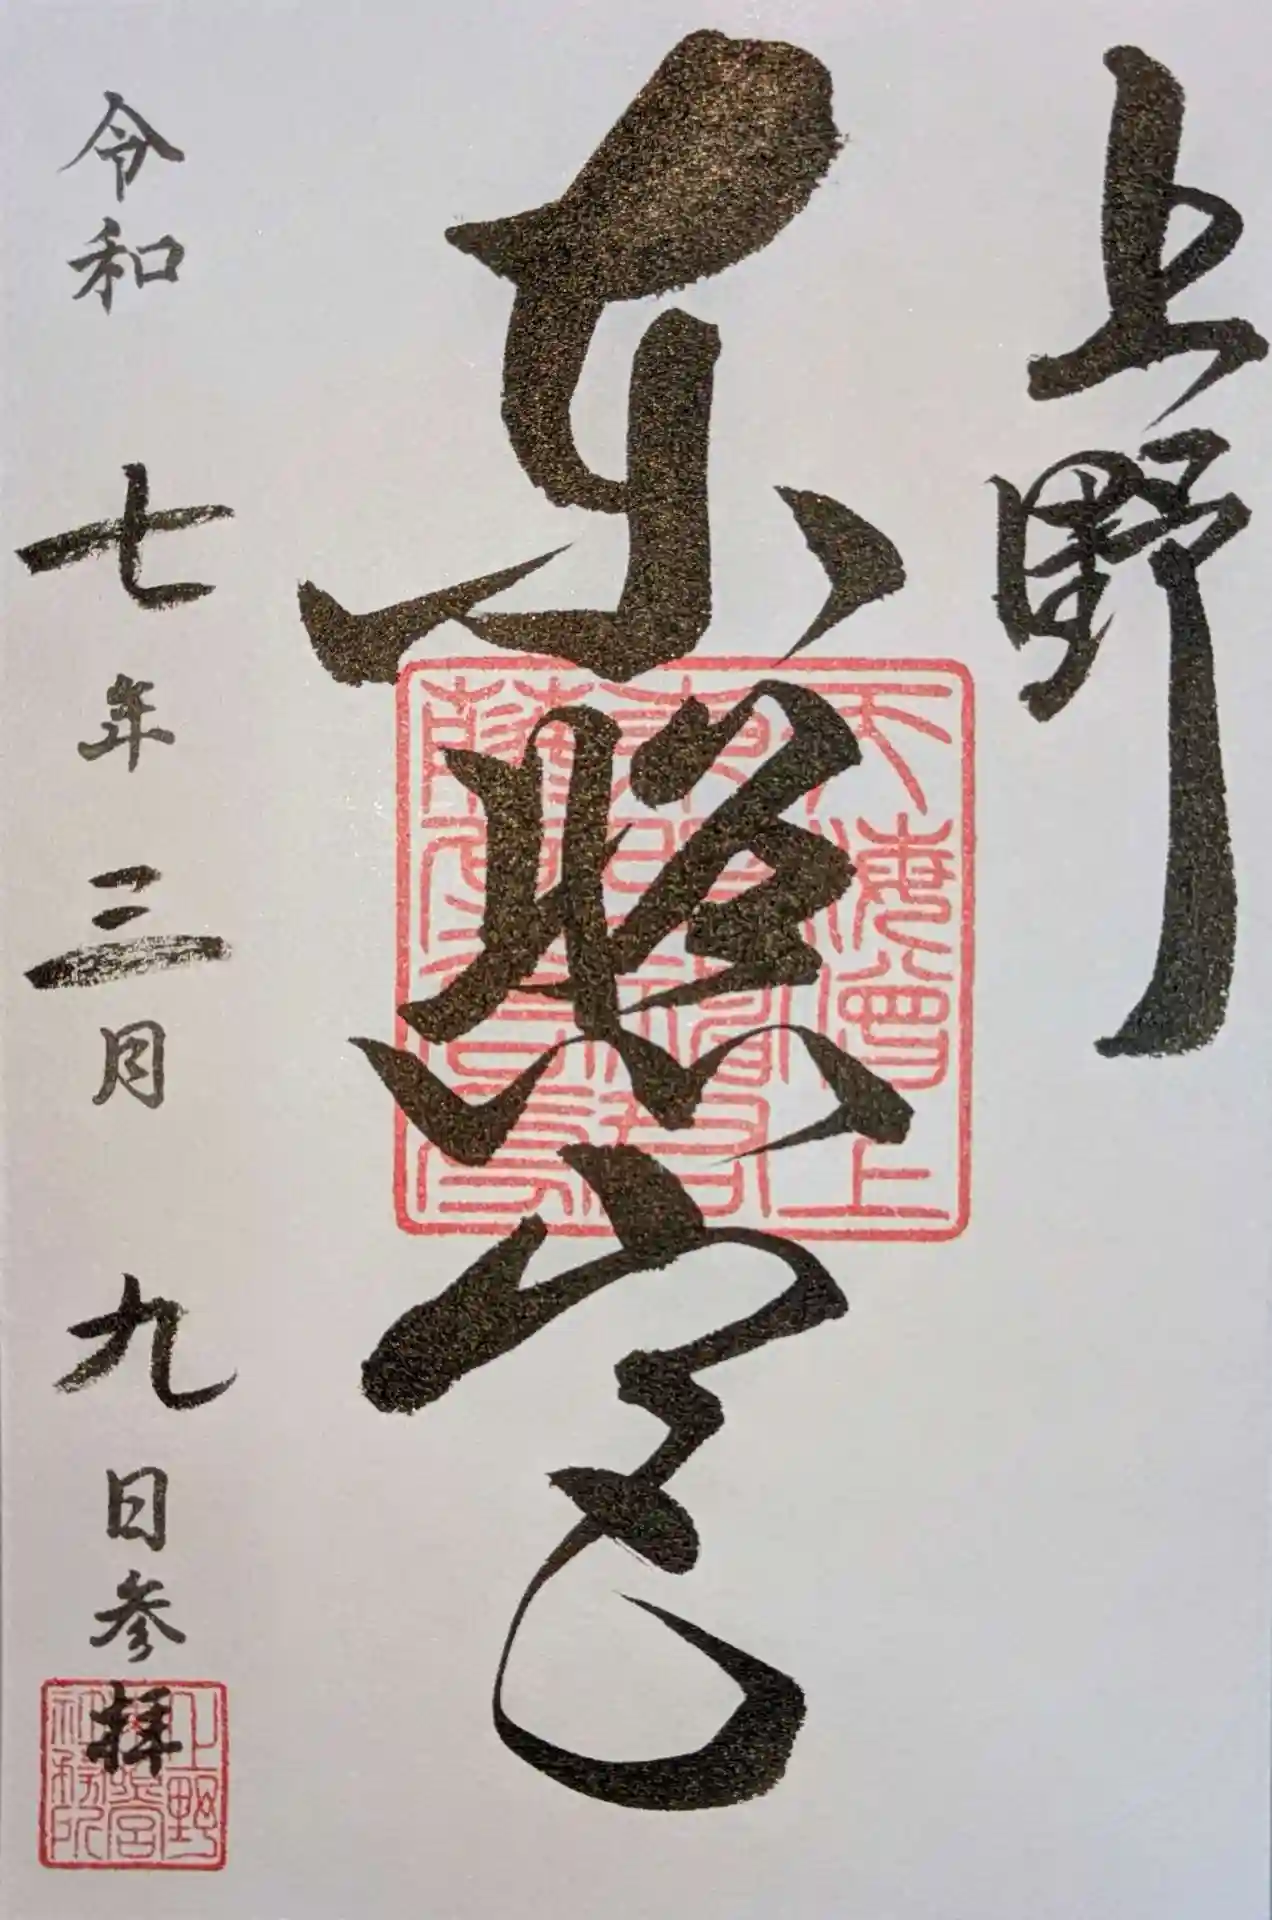 上野
東照宮
令和七年三月九日参拝
上野
東照宮
社務所